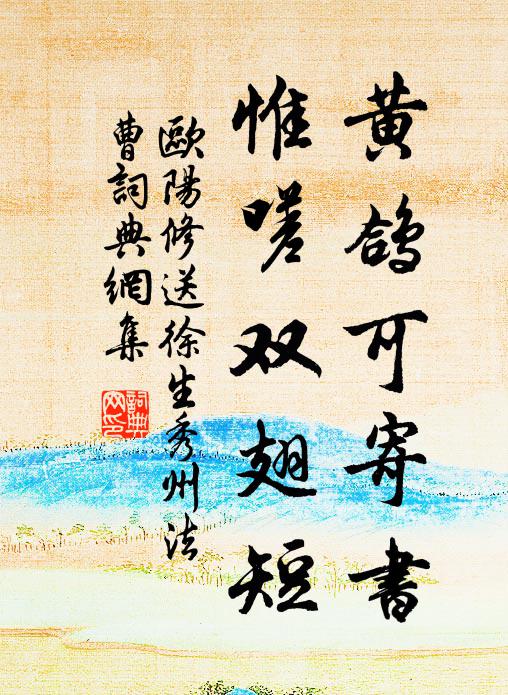 黄鸽可寄書
惟嗟双翅短
歐陽修送徐生秀州法
曹詞典網集
詞典网印